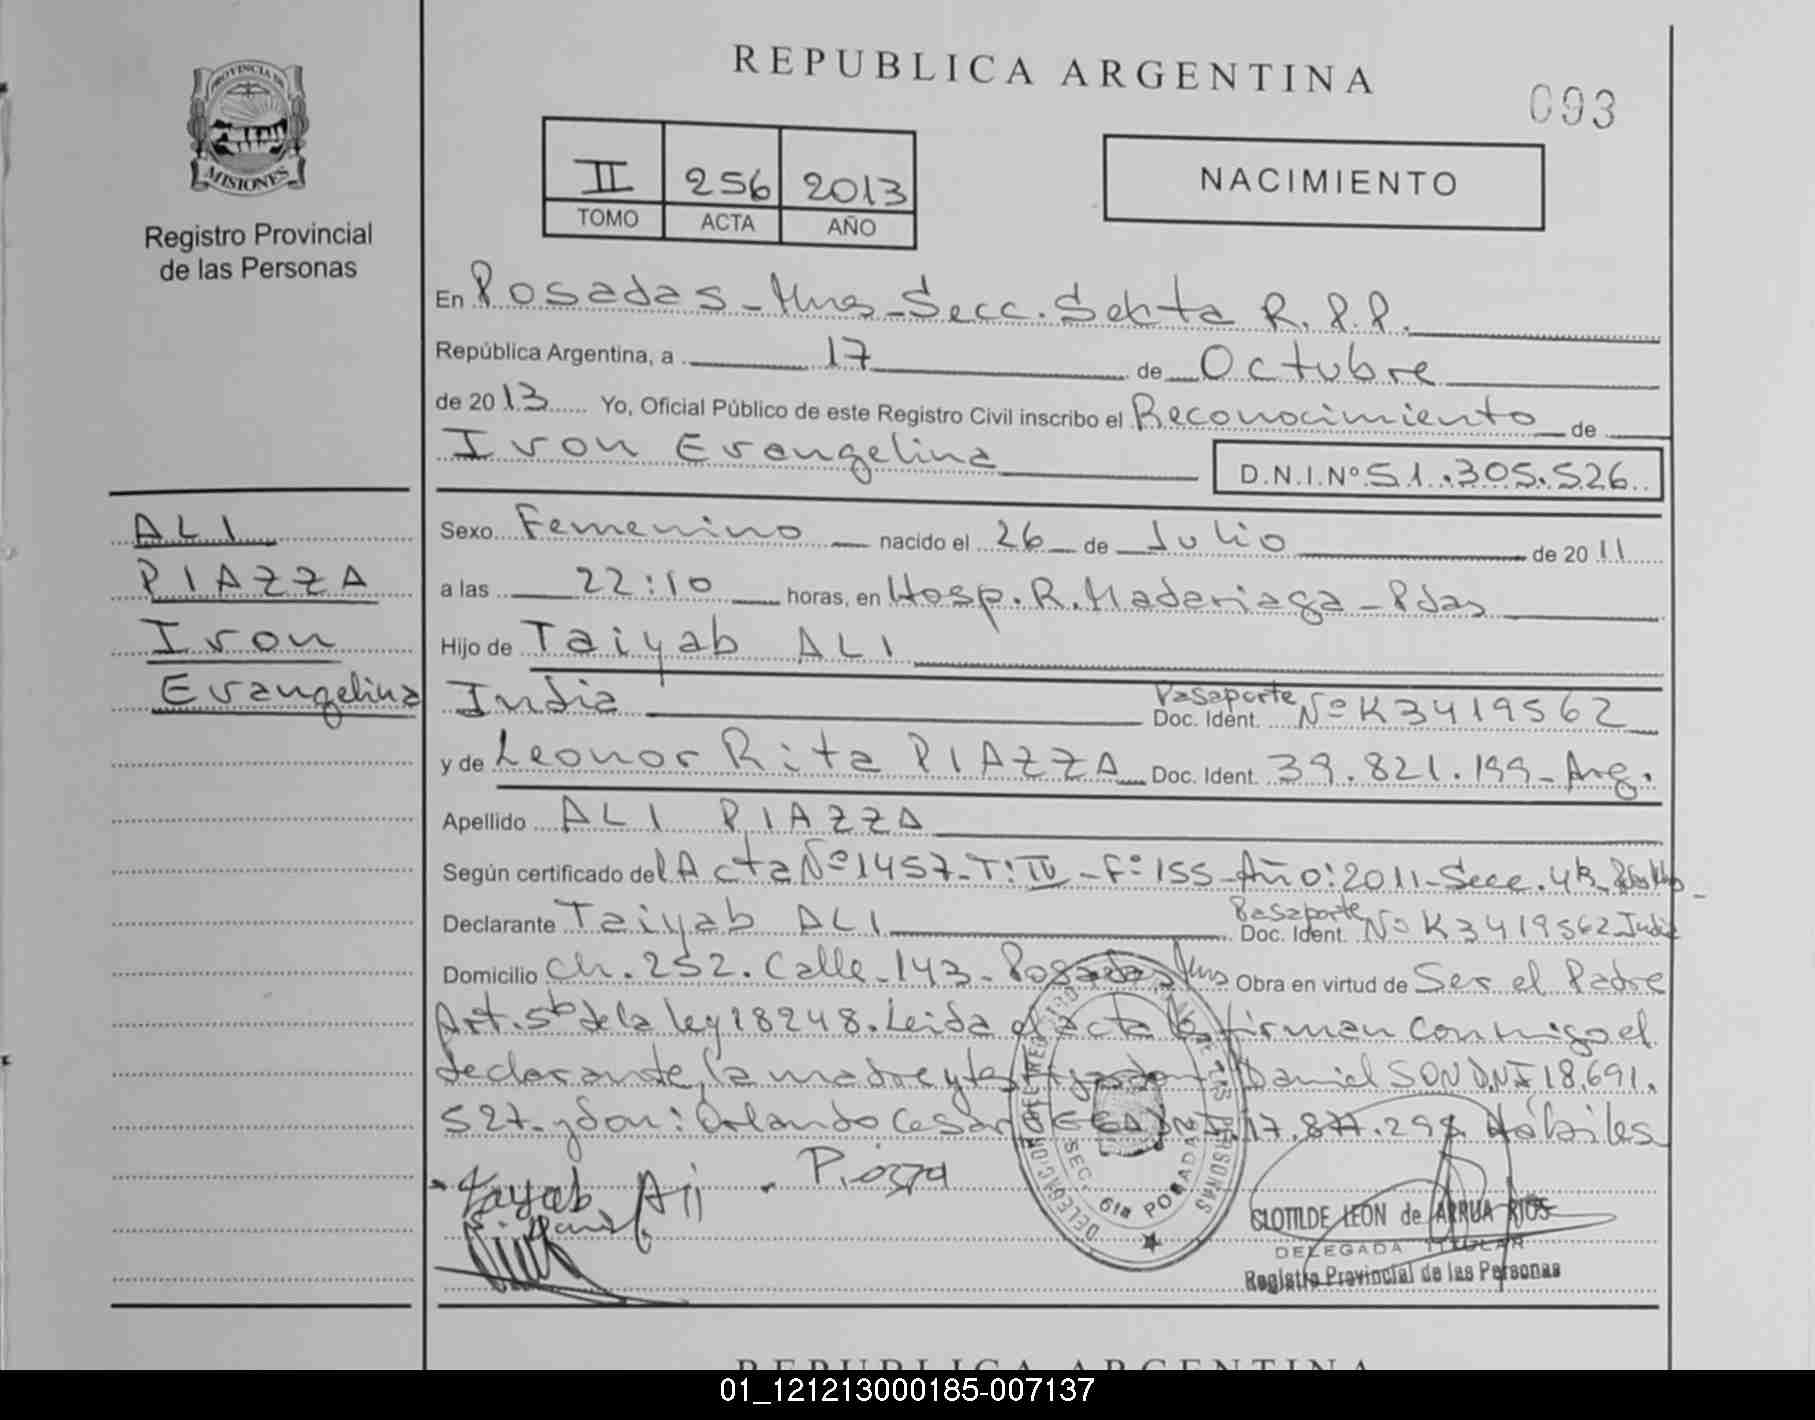 PROVINCIA DE
MISIONES
Registro Provincial
de las Personas
REPUBLICA ARGENTINA
093
II 256 2013
TOMO ACTA AÑO
NACIMIENTO
En Posadas - Mnes - Secc. Sexta R. P. P.
República Argentina, a 17 de Octubre
de 2013 Yo, Oficial Público de este Registro Civil inscribo el Reconocimiento de
Ivon Evangelina D.N.I.Nº 51.305.526
ALI
PIAZZA
Ivon
Evangelina
Sexo Femenino nacido el 26 de Julio de 2011
a las 22:10 horas, en Hosp. R. Madariaga - Pdas
Hijo de Taiyab ALI
India Pasaporte Doc. Ident. Nº K3419562
y de Leonor Rita PIAZZA Doc. Ident. 39.821.199 - Arg.
Apellido ALI PIAZZA
Según certificado del Acta Nº 1457 - T: IV - Fº 155 - Año: 2011 - Secc. 4ta
Declarante Taiyab ALI Pasaporte Doc. Ident. Nº K3419562 India
Domicilio Ch. 252. Calle - 143 - Posadas Mnes Obra en virtud de Ser el Padre
Art. 5to de la ley 18248. Leida el acta la firman conmigo el
declarante, la madre y Daniel SON DNI 18.691.
527 - y don: Orlando Cesar 17.877. Hábiles
Tayab Ali Piazza
DELEGACION DEL REGISTRO DE LAS PERSONAS
SEC. 6ta POSADAS
CLOTILDE LEON de ARRUA RIOS
DELEGADA TITULAR
Registro Provincial de las Personas
REPUBLICA ARGENTINA
01_121213000185-007137